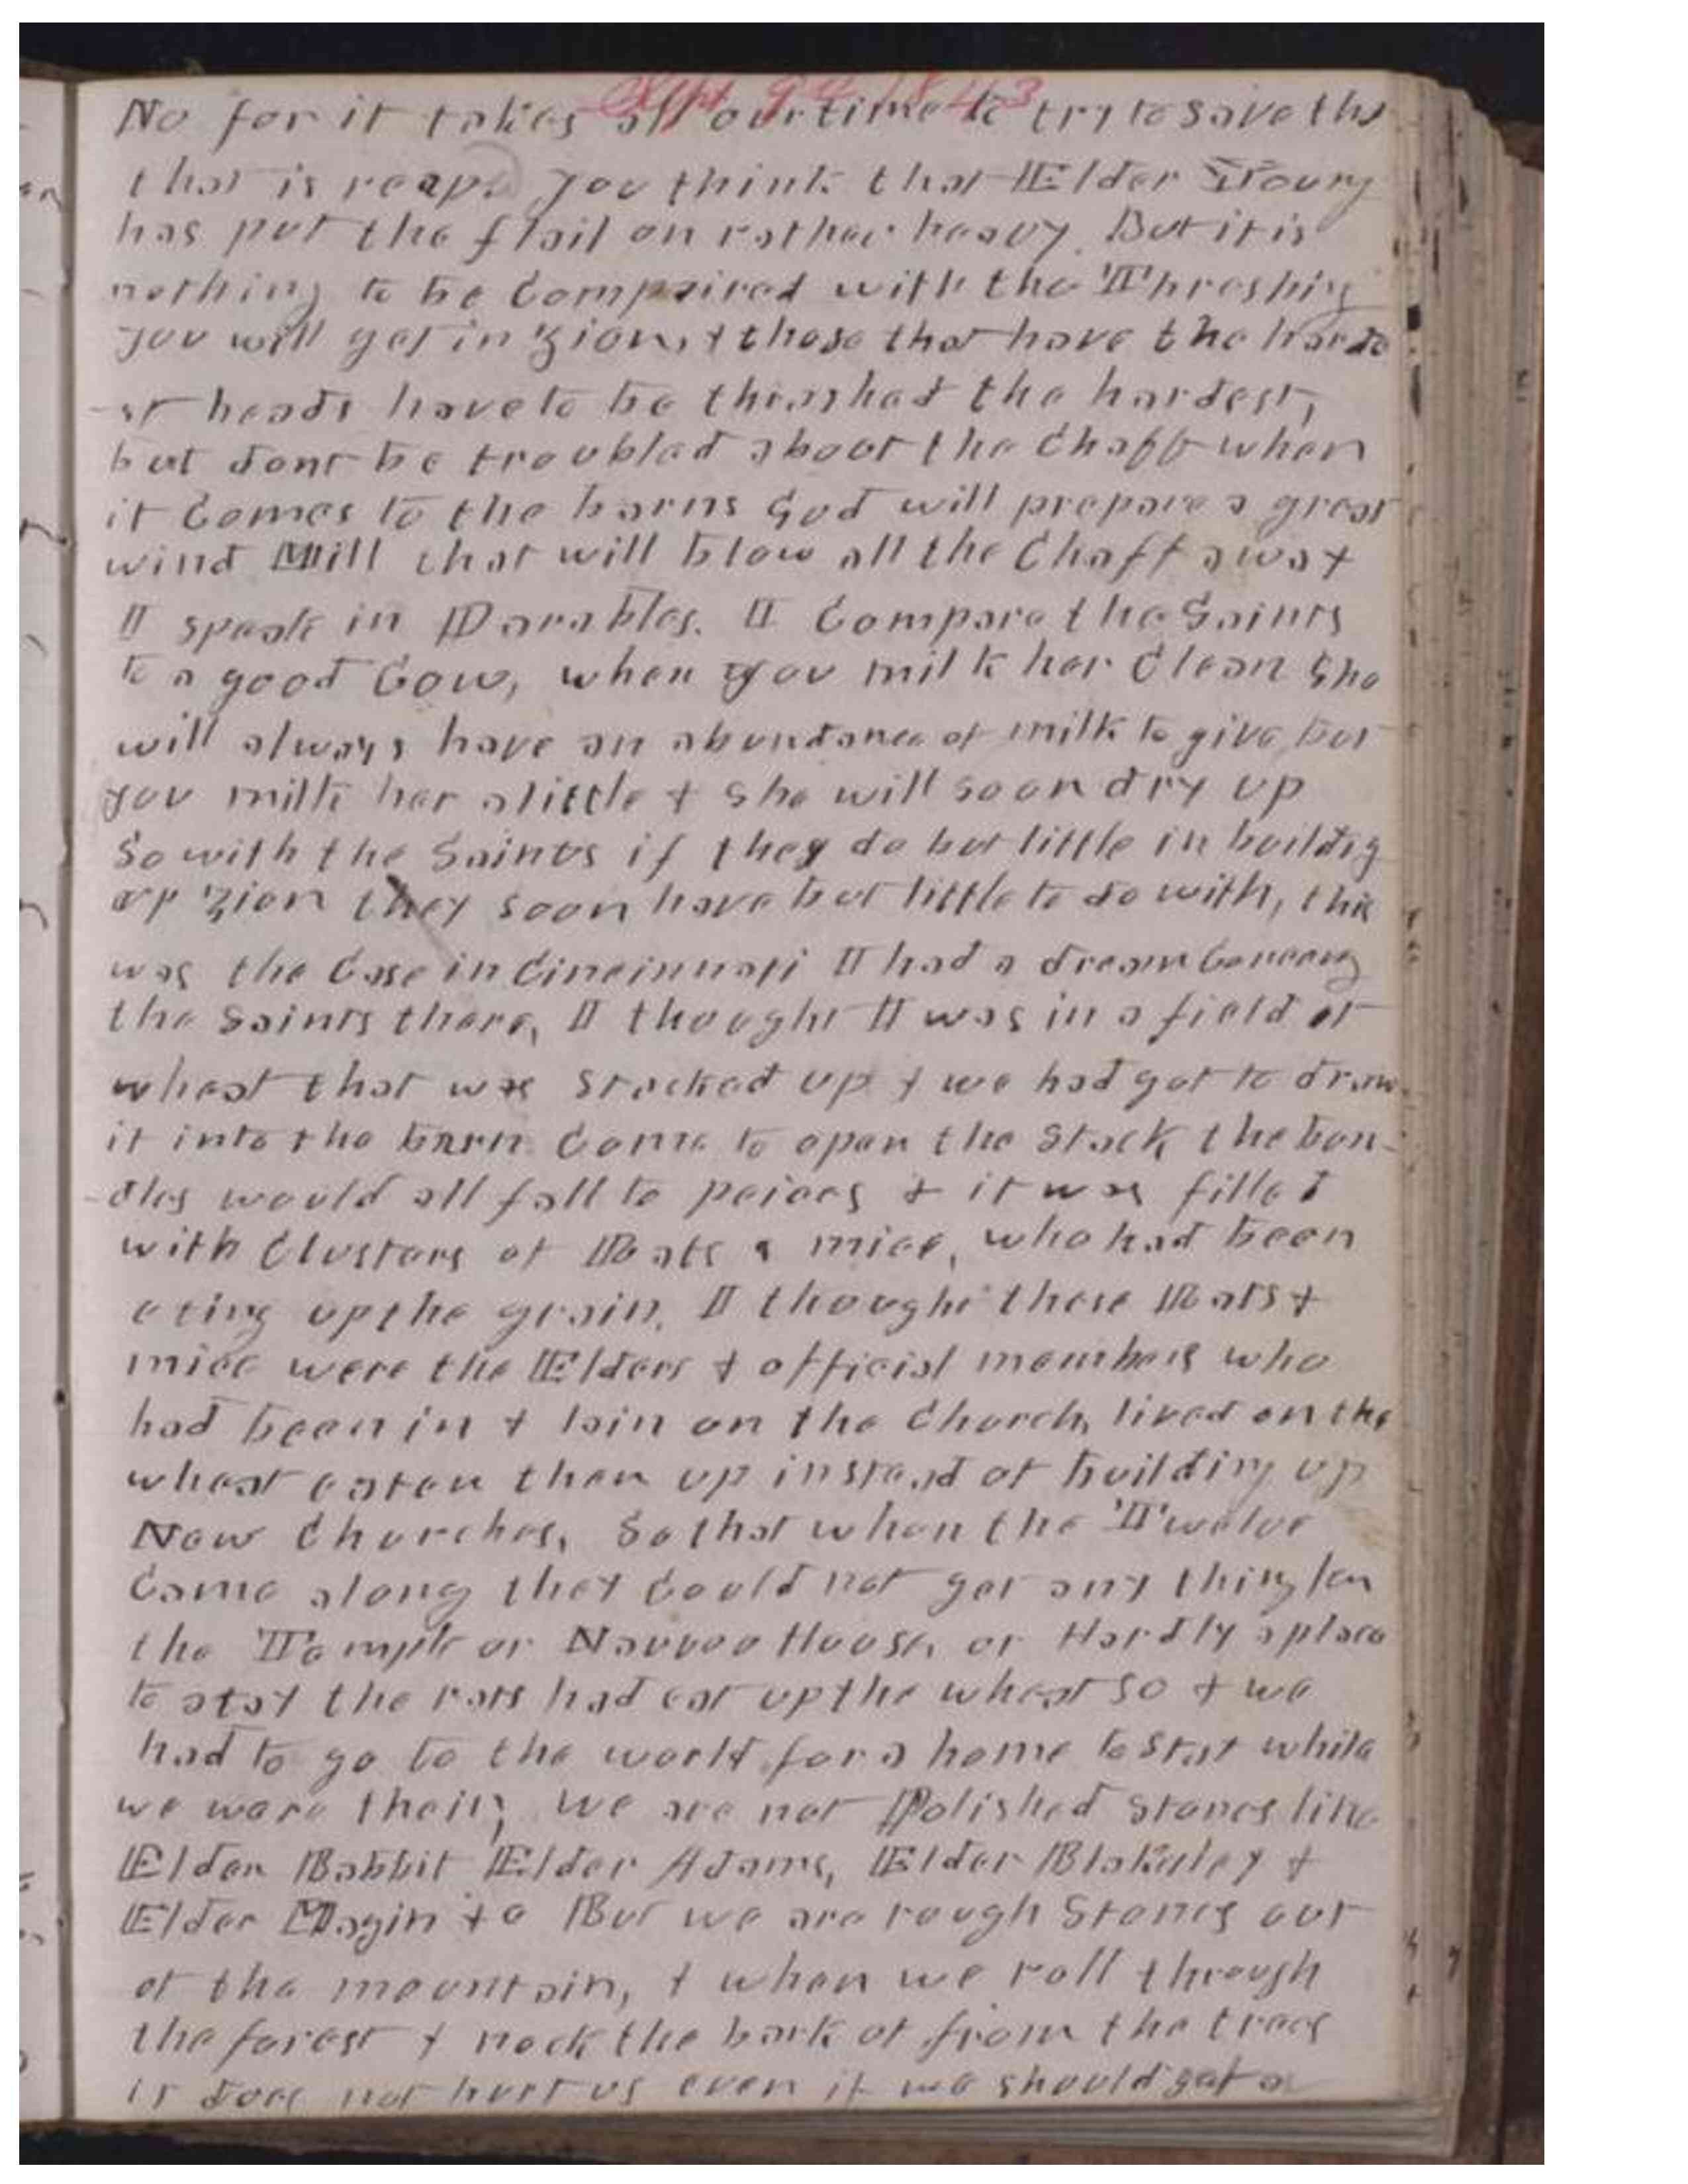 Sept 9th 1843
No for it takes all our time to try to save the
that is reap. you think that Elder Young
has put the flail on rather heavy. But it is
nothing to be Compaired with the Threshing
you will get in Zion, & those that have the harde
-st heads have to be thrashed the hardest,
but dont be troubled about the Chaff when
it Comes to the barns God will prepare a great
wind Mill that will blow all the Chaff away
I speak in Parables. I Compare the Saints
to a good Cow, when you milk her Clean She
will always have an abundance of milk to give, but
you milk her a little & she will soon dry up
So with the Saints if they do but little in buildig
up Zion they soon have but little to do with, this
was the Case in Cincinnati I had a dream Concerng
the Saints there, I thought I was in a field of
wheat that was Stacked up & we had got to draw
it into the barn Come to open the Stack the bun-
-dles would all fall to peices & it was filled
with Clusters of Rats & mice, who had been
eting up the grain. I thought these Rats &
mice were the Elders & official members who
had been in & lain on the Church, lived on the
wheat eaten them up instead of building up
New Churches, So that when the Twelve
Came along they Could not get any thing for
the Temple or Nauvoo House, or Hardly a place
to stay the rats had eat up the wheat so & we
had to go to the world for a home to stay while
we ware their, we are not Polished stones like
Elder Babbit Elder Adams, Elder Blakesley &
Elder Magin &c But we are rough Stones out
of the mountain, & when we roll through
the forest & nock the bark of from the trees
it does not hurt us even if we should get a